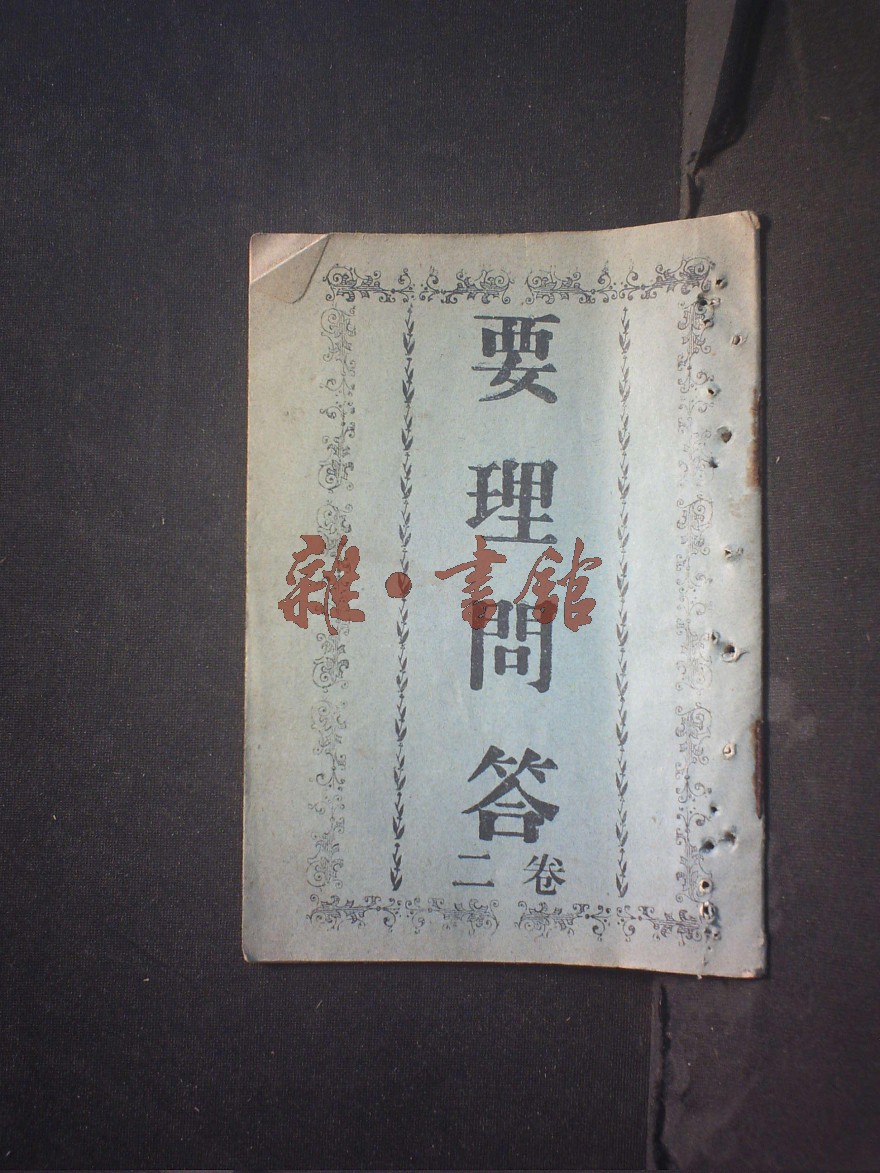 要理問答
卷二
雜·書館